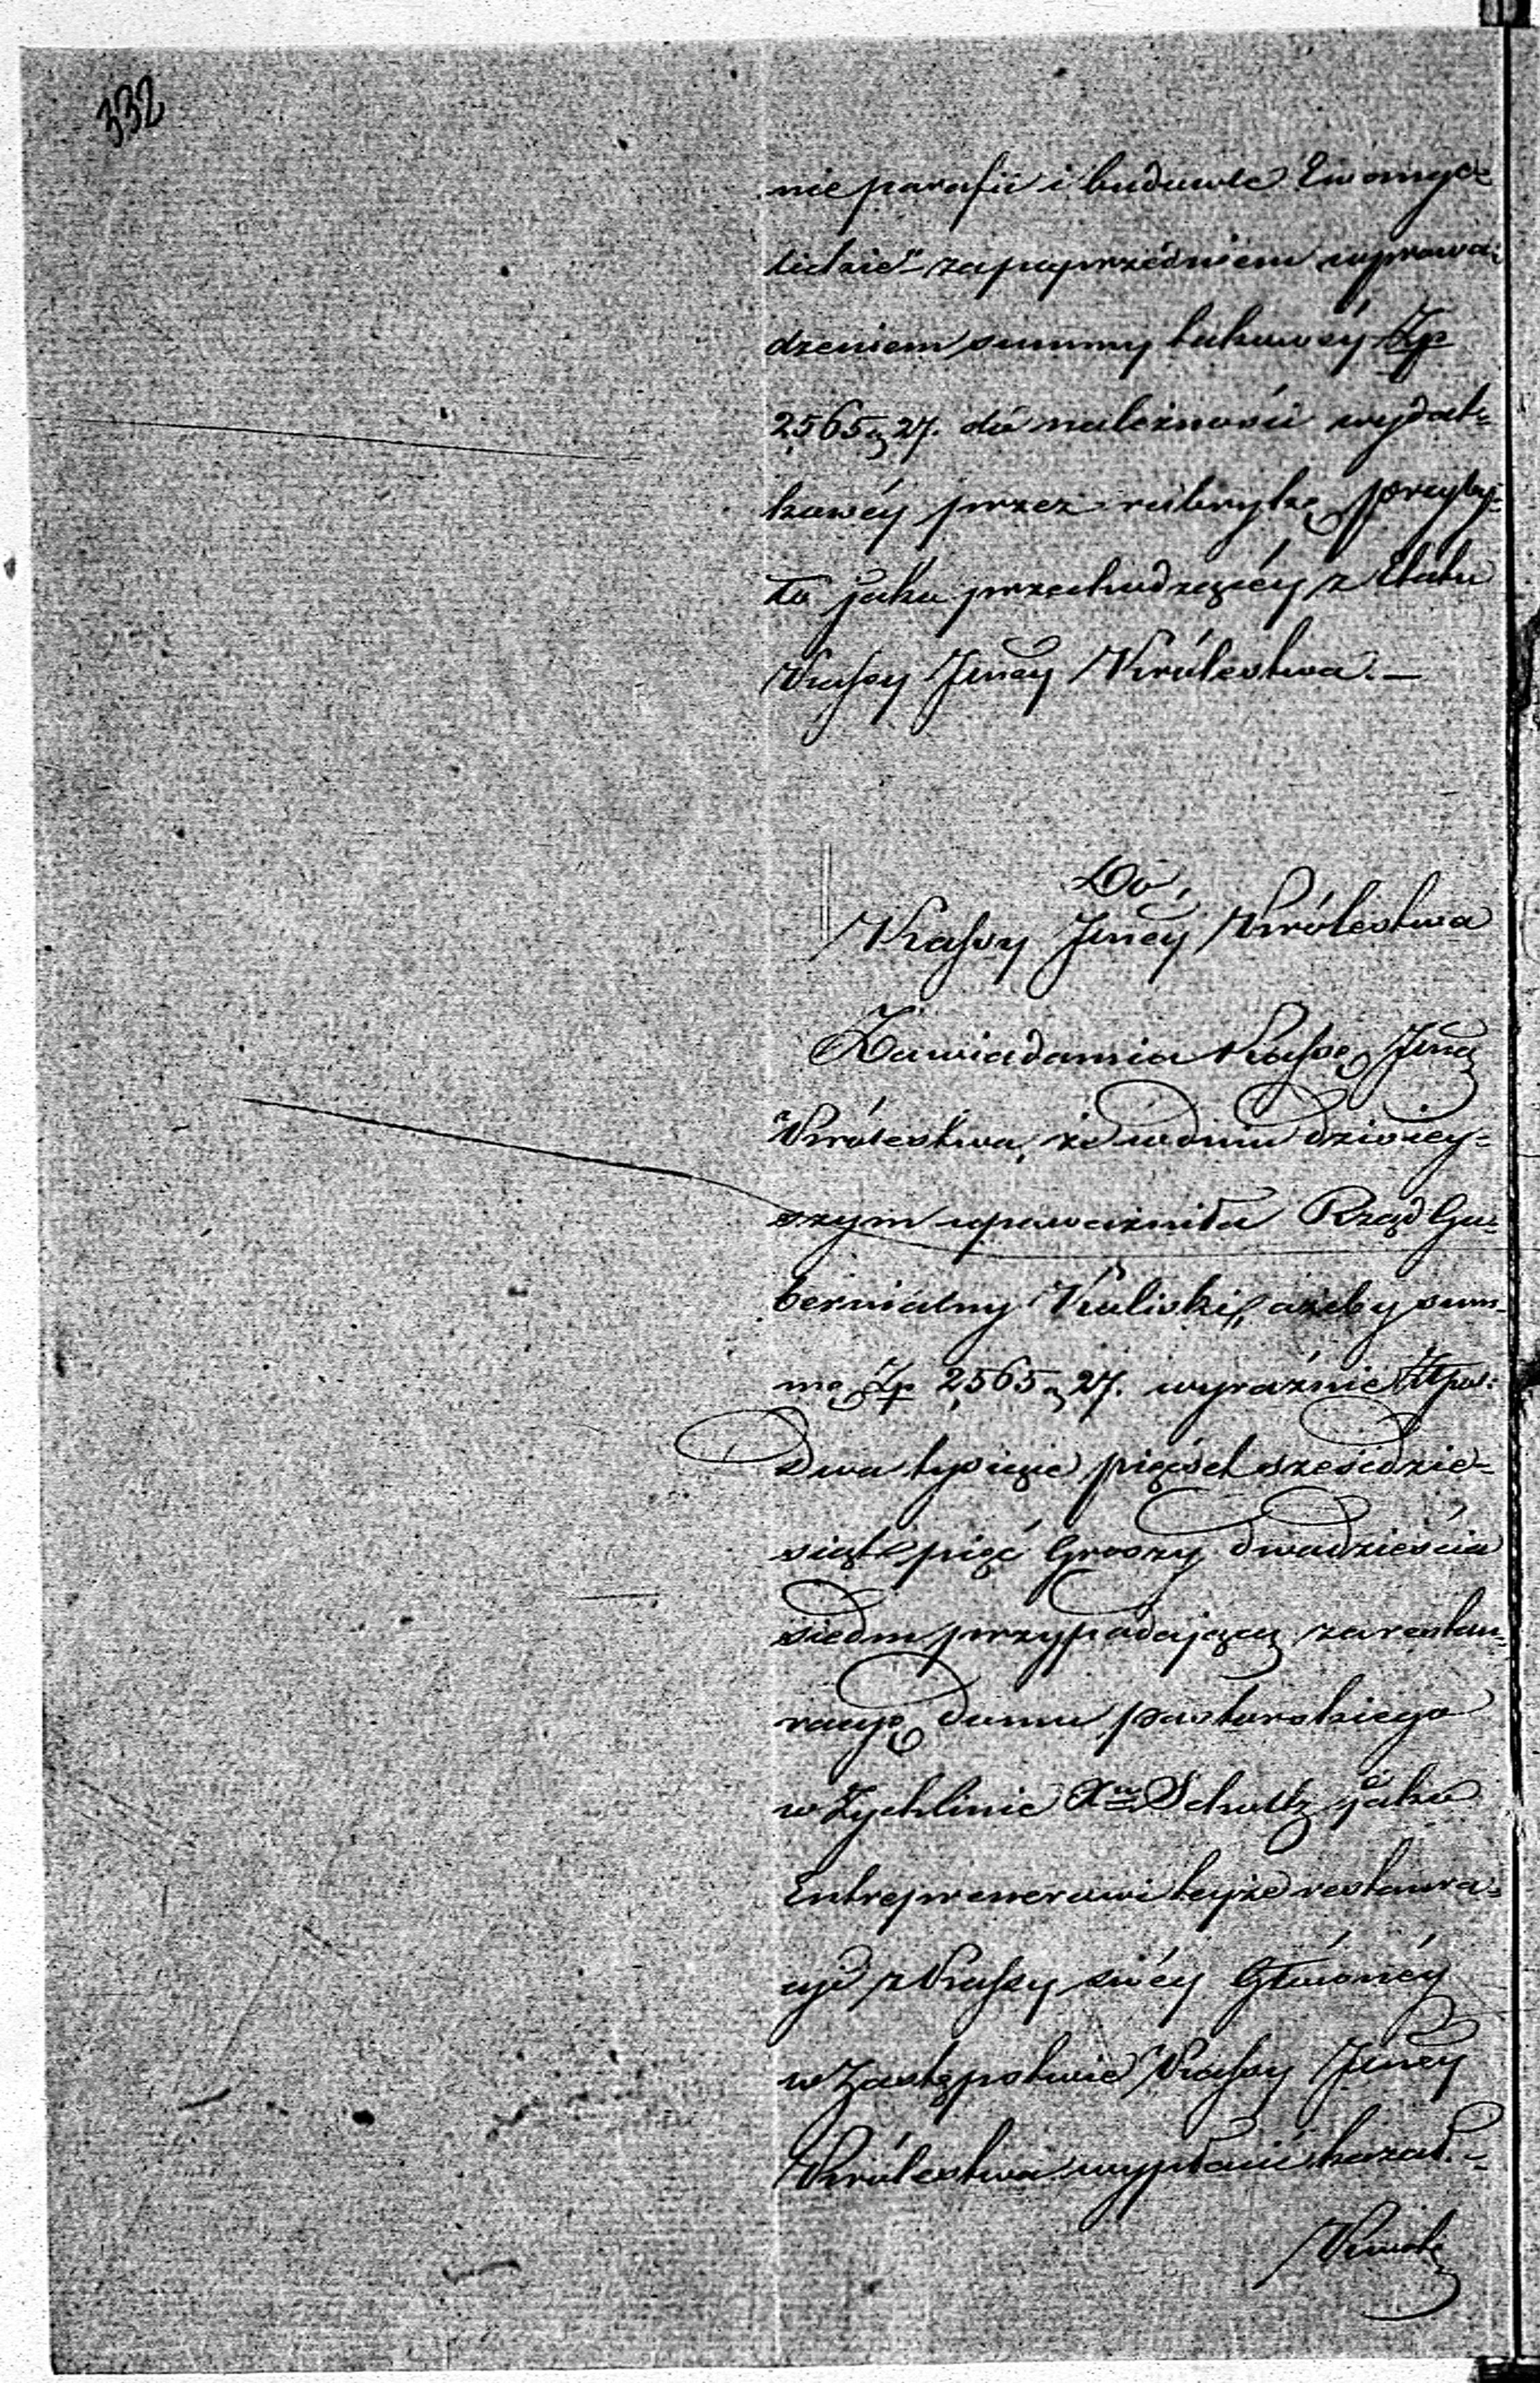 332
nie parafii i budowle Ewangie-
lickie" za poprzedniem wprowa-
dzeniem summy takowéy Złp
2,565 g 27. do należności wydat-
kowéy przez rubrykę
to jako przechodzącéy z Etatu
Kassy Jnéy Królestwa. —
Do,
Kassy Jnéy Królestwa
Zawiadamia Kassę Jną
Królestwa, że w dniu dzisiey-
szym upoważniła Rząd Gu-
bernialny Kaliski, ażeby sum-
mę Złp 2,565 g 27. wyraźnie Złpol:
Dwa tysiące pięćset sześćdzie-
siąt pięć Groszy dwadzieścia
siedm przypadającą za restau-
racyę domu pastorskiego
w Żychlinie Schultz jako
Entreprenerowi teyże restaura-
cyi z Kassy swéy Głównéy
w Zastępstwie Kassy Jnéy
Królestwa wypłacić kazał. -